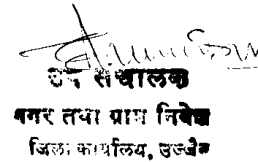 उप संचालक
नगर तथा ग्राम निवेश
जिला कार्यालय, उज्जैन